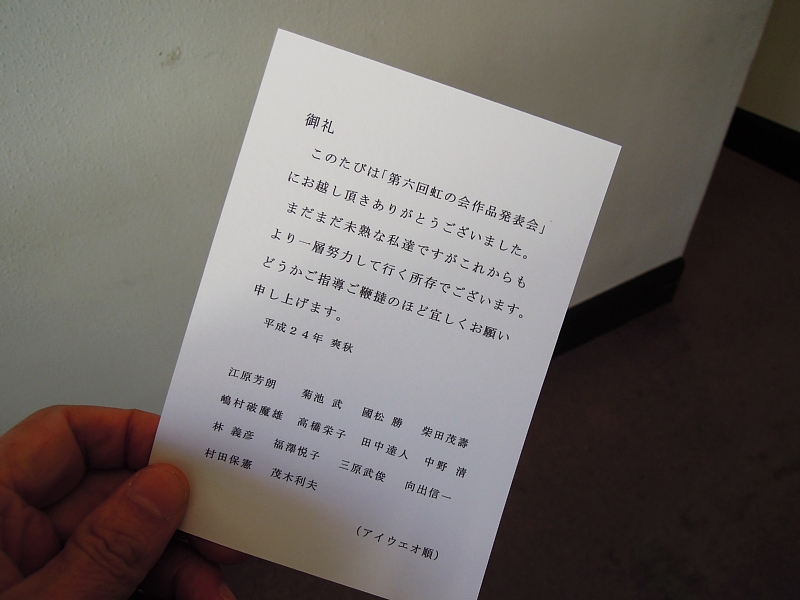 御礼
このたびは「第六回虹の会作品発表会」
にお越し頂きありがとうございました。
まだまだ未熟な私達ですがこれからも
より一層努力して行く所存でございます。
どうかご指導ご鞭撻のほど宜しくお願い
申し上げます。
平成24年 爽秋
江原芳朗 菊池 武 國松 勝 柴田茂壽
嶋村破魔雄 高橋栄子 田中達人 中野 清
林 義彦 福澤悦子 三原武俊 向出信一
村田保憲 茂木利夫
(アイウエオ順)